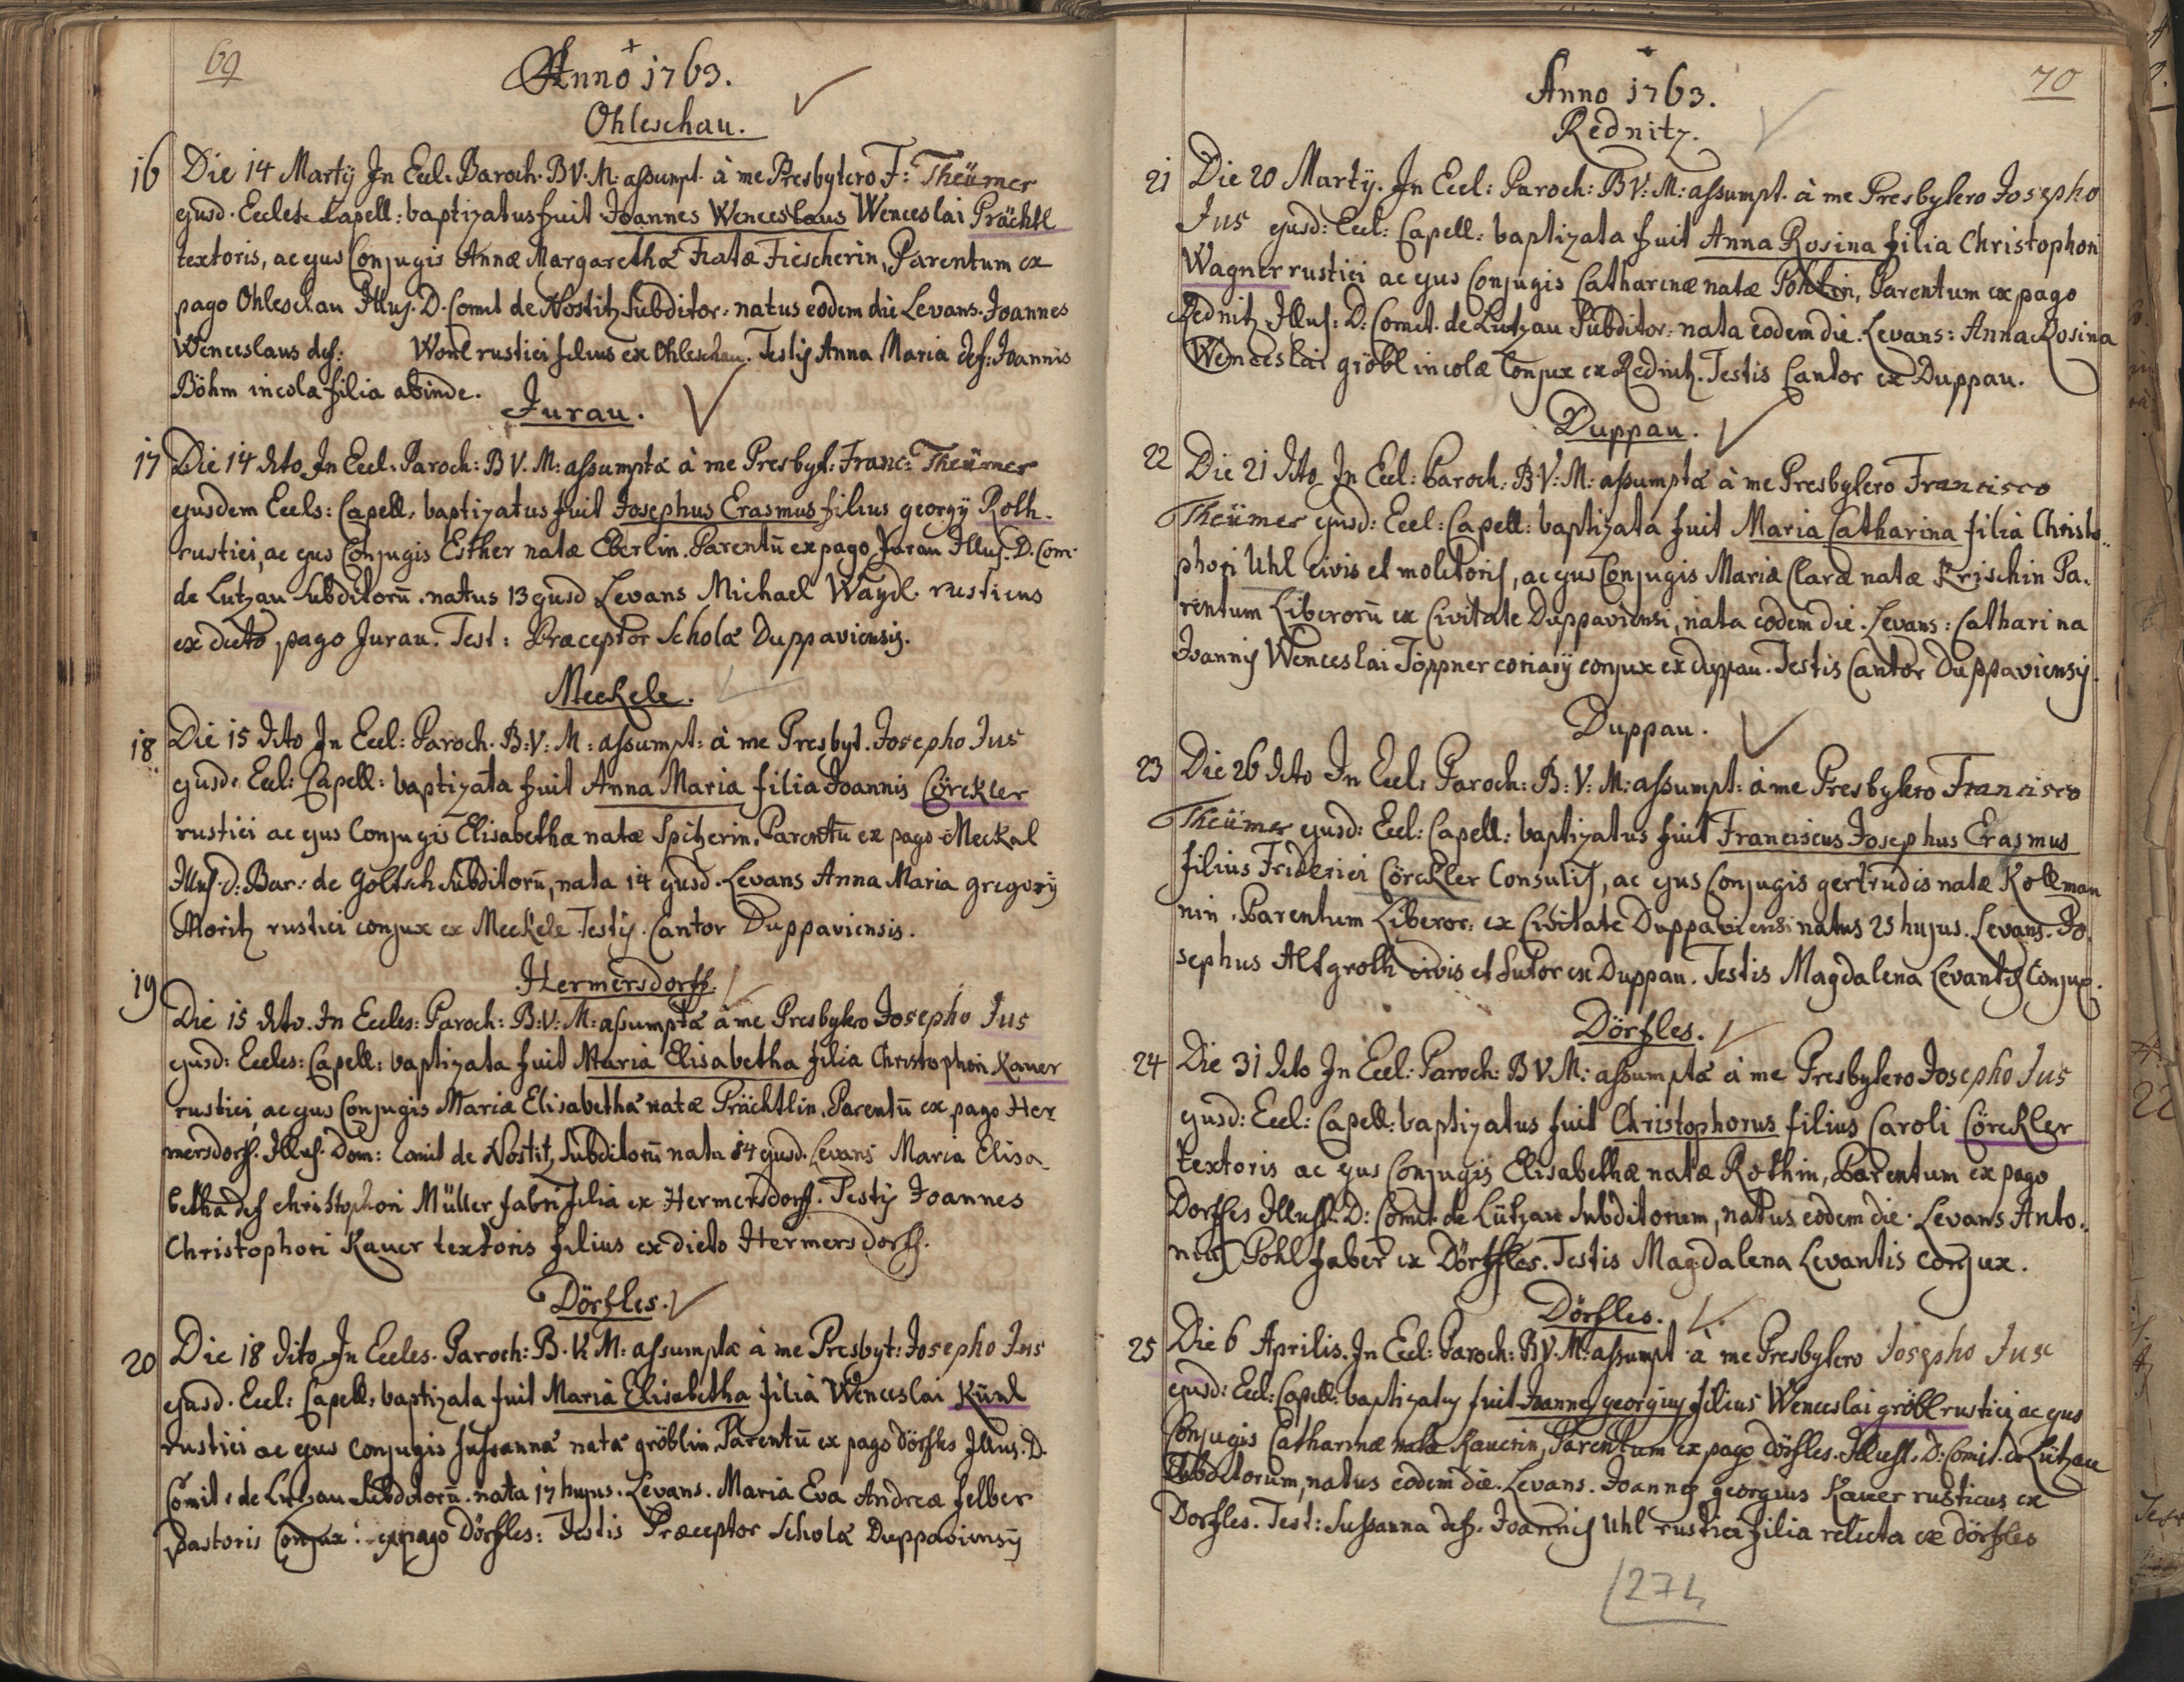 69
Anno 1763.
Ohleschau.
16 Die 14 Martÿ In Eccl. Paroch. B V. M: assumpt. à me Presbytero F: Theümer
ejusd. Eccles. Capell: baptizatus fuit Joannes Wenceslaus Wenceslai Prächtl
textoris, ac ejus Conjugis Annæ Margarethæ Natæ Fiescherin, Parentum ex
pago Ohleschau Illus. D. Comit de Nostitz Subditor. natus eodem die Levans. Joannes
Wenceslaus def: Wonl rustici filius ex Ohleschau. Testis Anna Maria def: Joannis
Böhm incolæ filia abinde.
Jurau.
17 Die 14 dito In Eccl. Paroch: B V. M: assumptæ à me Presbyt: Franc: Theümer
ejusdem Eccls: Capell. baptizatus fuit Josephus Erasmus filius georgÿ Roth.
rustici, ac ejus Conjugis Esther natæ Eberlin. Parentū ex pago Jurau Illus. D. Com.
de Lutzau Subditorū. natus 13 ejusd Levans Michael Waydl. rusticus
ex dicto pago Jurau. Test: Præceptor Scholæ Duppaviensis.
Meckele.
18 Die 15 dito In Eccl: Paroch. B: V: M: assumpt: à me Presbyt. Josepho Jus
ejusd. Eccl: Capell: baptizata fuit Anna Maria filia Joannis Cörckler
rustici ac ejus Conjugis Elisabethæ natæ Spitzerin. Parentū ex pago Meckal
Illus. D: Bar: de Göltsch Subditorū, nata 14 ejusd. Levans Anna Maria gregorÿ
Moritz rustici conjux ex Meckele Testis. Cantor Duppaviensis.
Hermersdorff.
19 Die 15 dito. In Eccles: Paroch: B: V: M: assumptæ à me Presbytero Josepho Jus
ejusd: Eccles: Capell: baptizata fuit Maria Elisabetha filia Christophori Kauer
rustici, ac ejus Conjugis Mariæ Elisabethæ natæ Prächtlin. Parentū ex pago Her
mersdorf. Illus. Dom: Comit de Nostitz Subditorū nata 14 ejusd. Levans Maria Elisa
betha def christophori Müller fabri filia ex Hermersdorff. Testis Joannes
Christophori Kauer textoris filius ex dicto Hermersdorff.
Dörfles.
20 Die 18 dito In Eccles. Paroch: B. V. M: assumptæ à me Presbyt: Josepho Jus
ejusd. Eccl: Capell: baptizata fuit Maria Elisabetha filia Wenceslai Künl
rustici ac ejus conjugis Sussannæ natæ gröblin. Parentū ex pago dörfles Illus. D.
Comit. de Lutzau Subditorū. nata 17 hujus. Levans. Maria Eva Andreæ felber
Pastoris Conjux: ex pago Dörfles: Testis Præceptor Scholæ Duppaviensis
70
Anno 1763.
Rednitz.
21 Die 20 Martÿ. In Eccl: Paroch: B V: M: assumpt. à me Presbytero Josepho
Jus ejusd: Eccl: Capell: baptizata fuit Anna Rosina filia Christophori
Wagner rustici ac ejus Conjugis Catharinæ natæ Pohlin, Parentum ex pago
Rednitz Illus: D: Comit. de Lutzau Subditor: nata eodem die. Levans: Anna Rosina
Wenceslai gröbl incolæ Conjux ex Rednitz. Testis Cantor ex Duppau.
Duppau.
22 Die 21 dito In Eccl: Paroch: B: V: M: assumptæ à me Presbytero Francisco
Theümer ejusd: Eccl: Capell: baptizata fuit Maria Catharina filia Christo
phori Uhl civis et molitoris, ac ejus Conjugis Mariæ Claræ natæ Krischin Pa.
rentum Liberorū ex Civitate Duppaviensi, nata eodem die. Levans: Catharina
Joannis Wenceslai Töppner coriarÿ conjux ex duppau. Testis Cantor Duppaviensis.
Duppau.
23 Die 26 dito In Eccl: Paroch: B: V: M: assumpt: à me Presbytero Francisco
Theümer ejusd: Eccl: Capell: baptizatus fuit Franciscus Josephus Erasmus
filius Friderici Cörckler Consulis, ac ejus Conjugis gertrudis natæ Kollman
nin. Parentum Liberor: ex Civitate Duppaviensi natus 25 hujus. Levans. Jo.
sephus Altgroth civis et Sutor ex Duppau. Testis Magdalena Levantis Conjux.
Dörfles.
24 Die 31 dito In Eccl: Paroch: B V. M: assumptæ à me Presbytero Josepho Jus
ejusd: Eccl: Capell: baptizatus fuit Christophorus filius Caroli Cörckler
textoris ac ejus Conjugis Elisabethæ natæ Rothin, Parentum ex pago
Dorfles Illuss. D: Comit. de Lützau Subditorum, natus eodem die. Levans Anto.
nius Pohl faber ex Dörffles. Testis Magdalena Levantis conjux.
Dörfles.
25 Die 6 Aprilis. In Eccl: Paroch: B V. M: assumpt. à me Presbytero Josepho Jus
ejusd: Eccl: Capell: baptizatus fuit Joannes georgius filius Wenceslai gröbl rustici ac ejus
Conjugis Catharinæ natæ Kauerin, Parentum ex pago dörfles. Illust. D: Comit. de Lützau
Subditorum, natus eodem die. Levans. Joannes georgius Kauer rusticus ex
Dorfles. Test: Sussanna def. Joannis Uhl rustici filia relicta ex dörfles
274